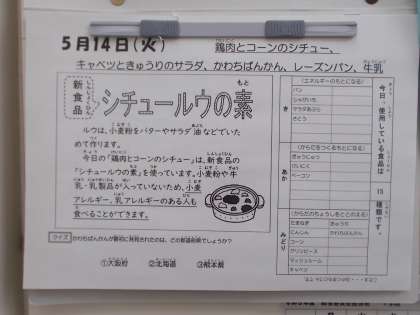 5月14日(火)
鶏肉とコーンのシチュー、
キャベツときゅうりのサラダ、かわちばんかん、レーズンパン、牛乳
新食品
シチュールウの素
ルウは、小麦粉をバターやサラダ油などでいた
めて作ります。
今日の「鶏肉とコーンのシチュー」は、新食品の
「シチュールウの素」を使っています。小麦粉や牛
乳・乳製品が入っていないため、小麦
アレルギー、乳アレルギーのある人も
食べることができます。
クイズ かわちばんかんが最初に発見されたのは、どの都道府県でしょうか?
①大阪府 ②北海道 ③熊本県
今日、使用している食品は 15 種類です。
き
(エネルギーのもとになる)
パン
じゃがいも
サラダあぶら
さとう
あか
(からだをつくるもとになる)
ぎゅうにゅう
けいにく
ベーコン
みどり
(からだのちょうしをととのえる)
たまねぎ きゅうり
にんじん かわちばんかん
コーン
グリンピース
マッシュルーム
キャベツ